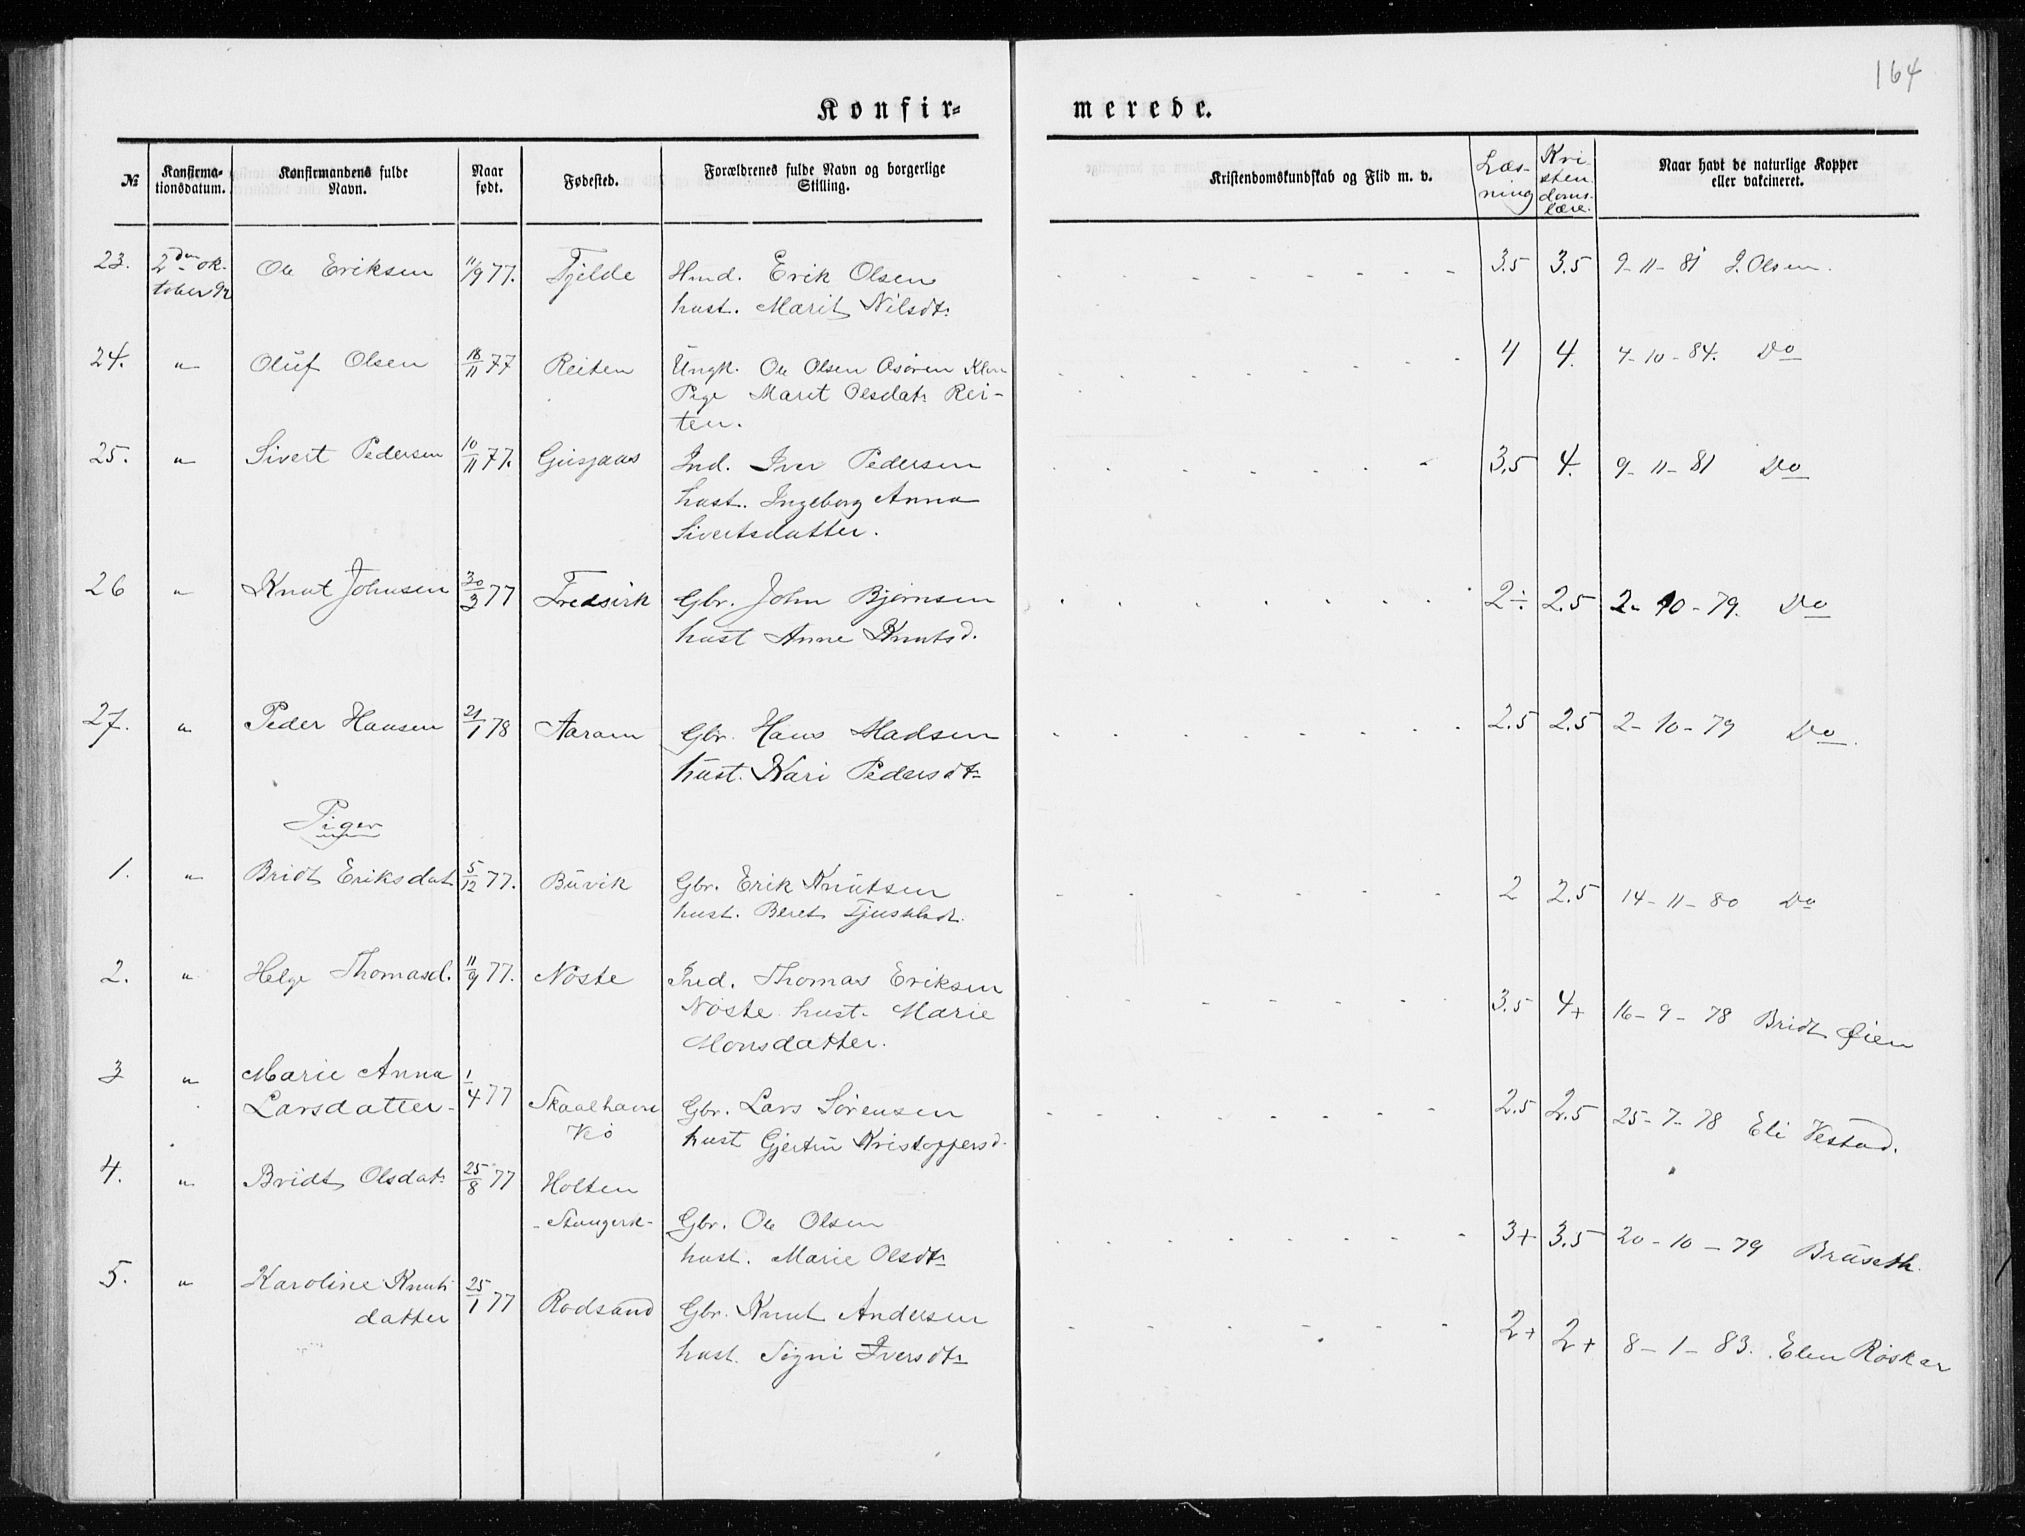 164
Konfir-
merede.
№
Konfirma-
tionsdatum.
Konfirmandens fulde
Navn.
Naar
født.
Fødested.
Forældrenes fulde Navn og borgerlige
Stilling.
Kristendomskundskab og Flid m. v.
Læs-
ning
Kri-
sten-
doms-
lære.
Naar havt de naturlige Kopper
eller vakcineret.
23. 2den ok- Ole Eriksen 11/9 77. Fjelde Hmd. Erik Olsen 3.5 3.5 9-11-81 J. Olsen.
tober 92 hust. Marit Nilsdtr
24. " Oluf Olsen 16/11 77 Reiten Ungk. Ole Olsen Osøren 4 4. 7-10-84. Do
Pige Marit Olsdatr Rei-
ten.
25. " Sivert Pedersen 10/11 77. Gusjaas Ind. Iver Pedersen 3.5 4. 9-11-81 Do
hust. Ingeborg Anna
Sivertsdatter.
26 " Knut Johnsen 30/3 77 Fredsvik Gbr. John Bjørnsen 2÷ 2.5 2-10-79. Do
hust Anne Knutsd.
27. " Peder Hansen 21/1 78 Aaram Gbr. Hans Madsen 2.5 2.5 2-10-79 Do.
hust. Kari Pedersdtr
Piger
1. " Bridt Eriksdat 5/12 77. Buvik Gbr. Erik Knutsen 2 2.5 14-11-80 Do
hust. Beret
2. " Helge Thomasd. 11/9 77. Nøste Ind. Thomas Eriksen
Nøste hust. Marie 3.5 4+ 16-9-78 Bridt Øien
Monsdatter.
3 " Marie Anna 1/4 77
Larsdatter- Skaalhavn Gbr. Lars Sørensen 2.5 2.5 25-7-78 Eli Vestad.
hust Gjertru Kristoppersd.
4. " Bridt Olsdatr 25/8 77 Holten
-Stangvik- Gbr. Ole Olsen 3+ 3.5 20-10-79 Bruseth.
hust. Marie Olsdtr
5. " Karoline Knuts 25/1 77 Rødsand Gbr. Knut Andersen 2+ 2+ 8-1-83. Elen Røskar
datter
hust. Signi Iversdtr